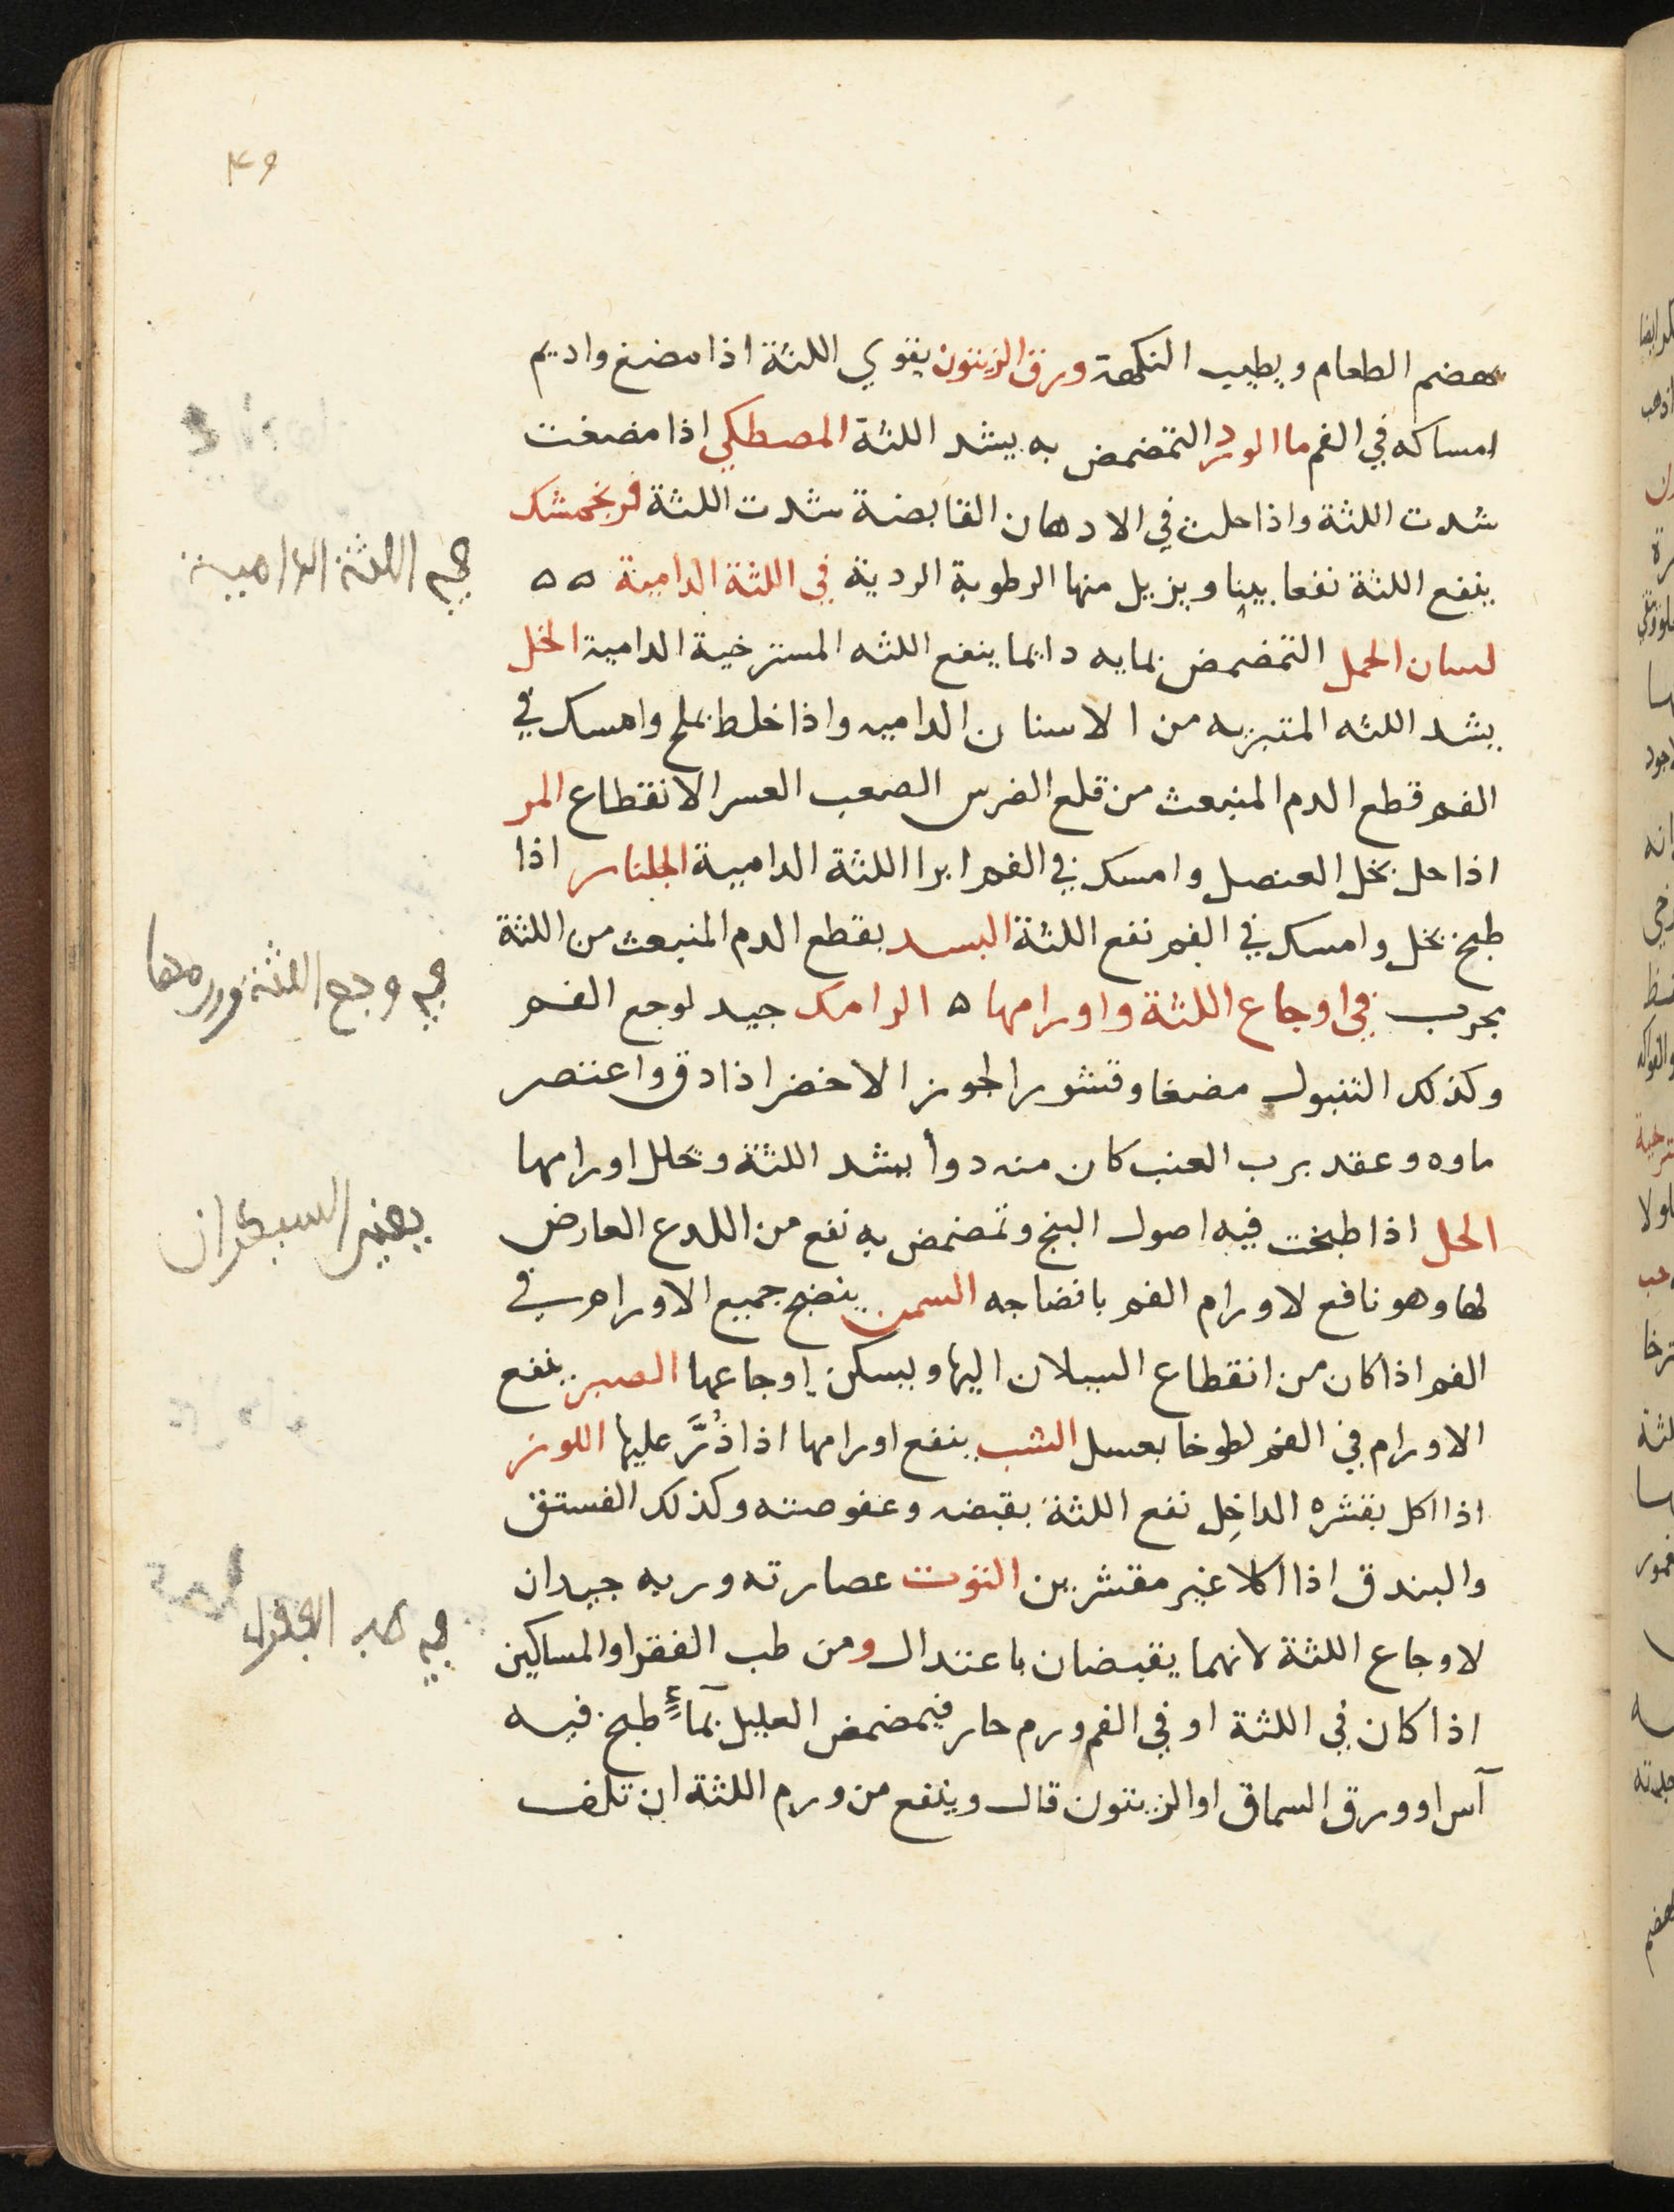 ۴۶
يهضم الطعام ويطيب النكهة ورق الزيتون يقوي اللثة اذا مضغ واديم
امساكه في الفم ما الورد التمضمض به يشد اللثة المصطكي اذا مضغت
شدت اللثة واذا حلت في الادهان القابضة شدت اللثة فرنجمشك
ينفع اللثة نفعا بينا ويزيل منها الرطوبة الردية في اللثة الدامية ٥ ٥
في اللثة الدامية
لسان الحمل التمضمض بمايه دايما ينفع اللثه المسترخية الدامية الخل
يشد اللثه المتبريه من الاسنان الداميه واذا خلط بملح وامسك في
الفم قطع الدم المنبعث من قلع الضرس الصعب العسر الانقطاع المر
اذا حل بخل العنصل وامسك في الفم ابرا اللثة الدامية الجلنار اذا
طبخ بخل وامسك في الفم نفع اللثة البسد يقطع الدم المنبعث من اللثة
مجرب في اوجاع اللثة واورامها ٥ الرامك جيد لوجع الفم
في وجع اللثة وورمها
وكذلك التنبول مضغا وقشور الجوز الاخضر اذا دق واعتصر
ماوه وعقد برب العنب كان منه دوأ يشد اللثة ويحلل اورامها
الخل اذا طبخت فيه اصول البنج وتمضمض به نفع من اللدع العارض
يعني السيكران
لها وهو نافع لاورام الفم بانضاجه السمن ينضج جميع الاورام في
الفم اذا كان من انقطاع السيلان اليها ويسكن اوجاعها الصبر ينفع
الاورام في الفم لطوخا بعسل الشب ينفع اورامها اذا ذُرَّ عليها اللوز
اذا اكل بقشره الداخل نفع اللثة بقبضه وعفوصته وكذلك الفستق
والبندق اذا اكلا غير مقشرين التوت عصارته وربه جيدان
لاوجاع اللثة لانهما يقبضان باعتدال ومن طب الفقرا والمساكين
في طب الفقرا
اذا كان في اللثة او في الفم ورم حار فيمضمض العليل بمآءٍ طبخ فيه
آس او ورق السماق او الزيتون قال وينفع من ورم اللثة ان تلف